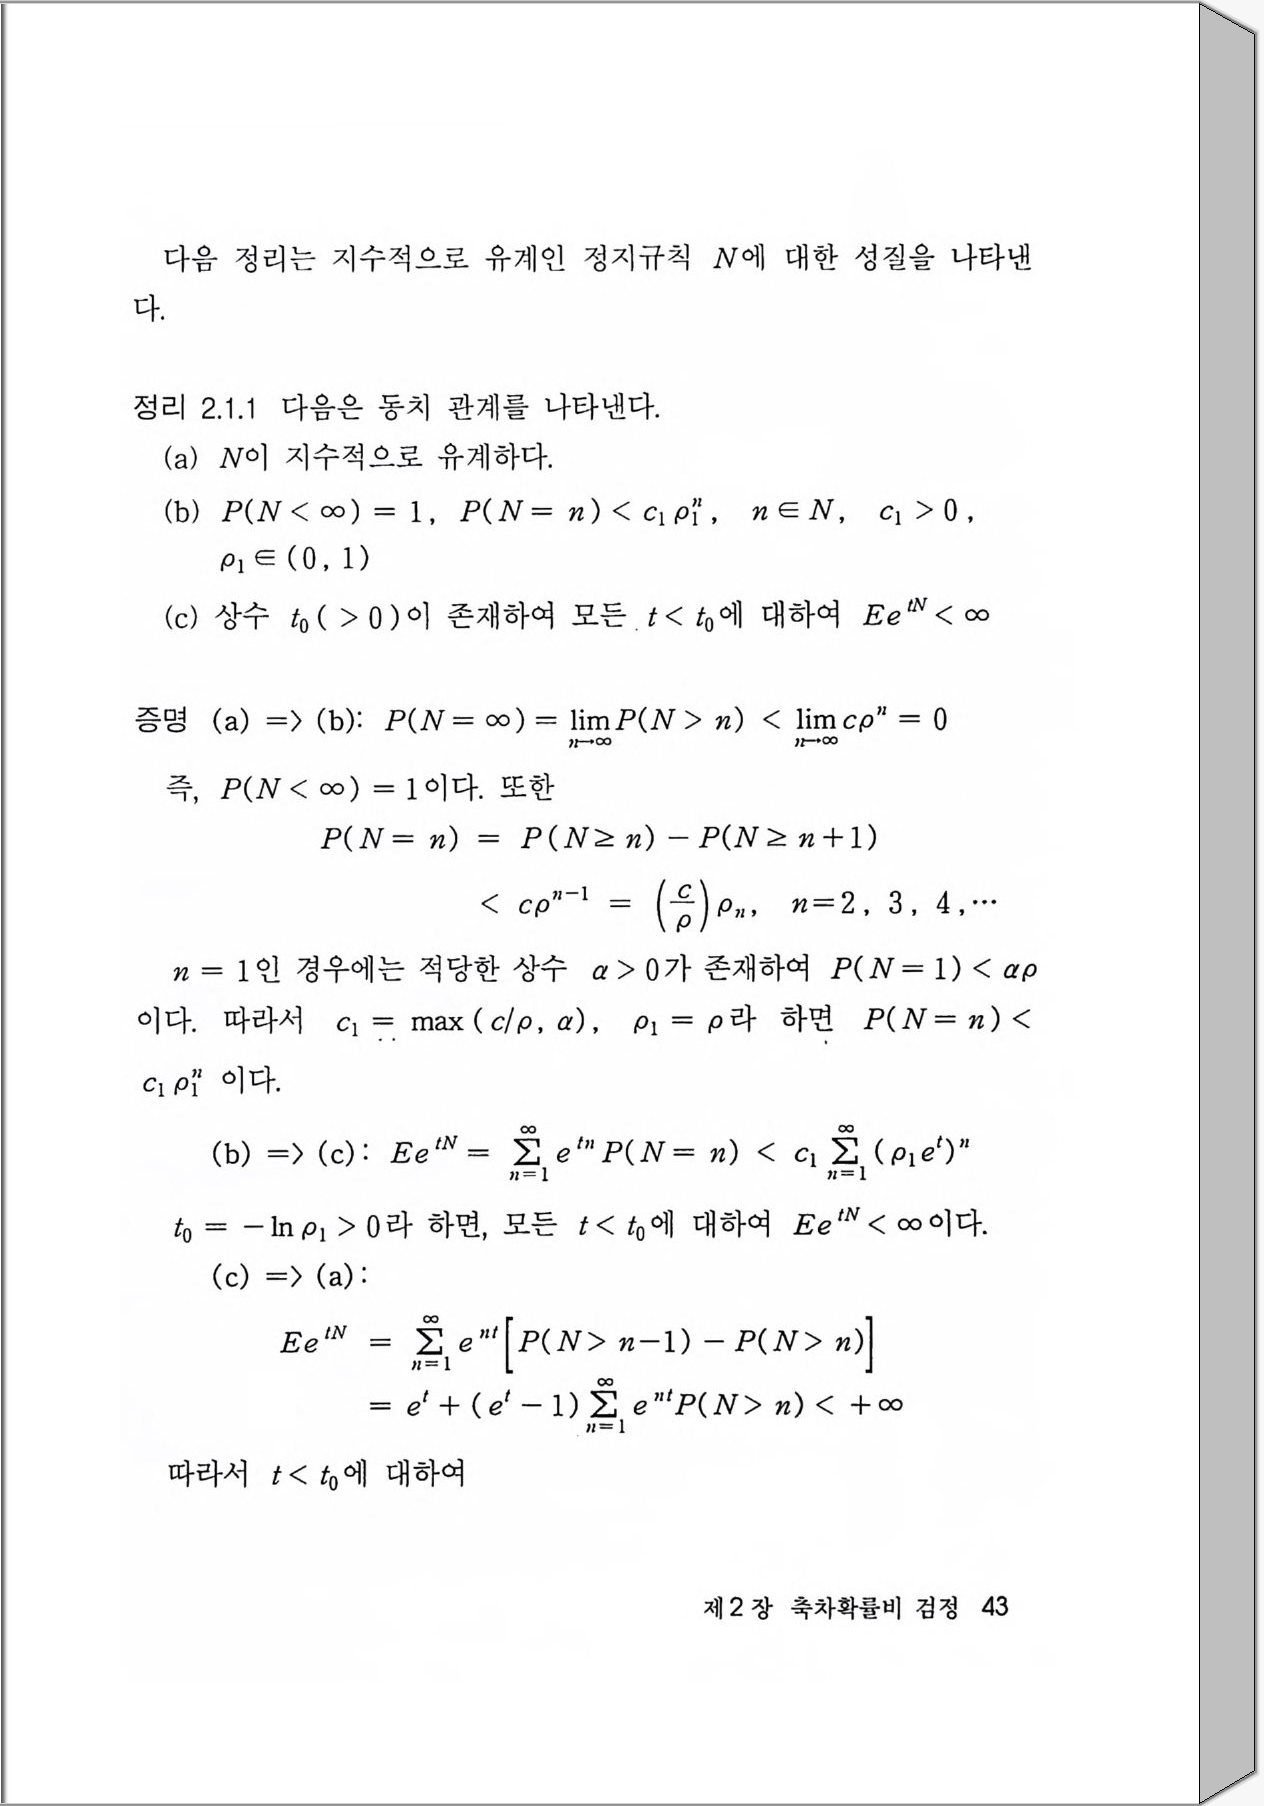 다음 정리는 지수적으로 유계인 정지규칙 N에 대한 성질을 나타낸
다.
정리 2.1.1 다음은 동치 관계를 나타낸다.
(a) N이 지수적으로 유계하다.
(b) P(N < ∞) = 1, P(N = n) < c₁ρ₁ⁿ, n ∈ N, c₁ > 0,
ρ₁ ∈ (0, 1)
(c) 상수 t₀( > 0)이 존재하여 모든 t < t₀에 대하여 Ee^{tN} < ∞
증명 (a) => (b): P(N = ∞) = lim_{n→∞} P(N > n) < lim_{n→∞} cρⁿ = 0
즉, P(N < ∞) = 1이다. 또한
P(N = n) = P(N ≥ n) − P(N ≥ n+1)
< cρ^{n−1} = (c/ρ)ρₙ, n=2, 3, 4,⋯
n = 1인 경우에는 적당한 상수 α > 0가 존재하여 P(N = 1) < αρ
이다. 따라서 c₁ = max (c/ρ, α), ρ₁ = ρ라 하면 P(N = n) <
c₁ρ₁ⁿ 이다.
(b) => (c): Ee^{tN} = ∑_{n=1}^{∞} e^{tn} P(N = n) < c₁ ∑_{n=1}^{∞} (ρ₁e^t)ⁿ
t₀ = − ln ρ₁ > 0라 하면, 모든 t < t₀에 대하여 Ee^{tN} < ∞이다.
(c) => (a):
Ee^{tN} = ∑_{n=1}^{∞} e^{nt}[P(N > n−1) − P(N > n)]
= e^t + (e^t − 1) ∑_{n=1}^{∞} e^{nt} P(N > n) < +∞
따라서 t < t₀에 대하여
제2장 축차확률비 검정 43